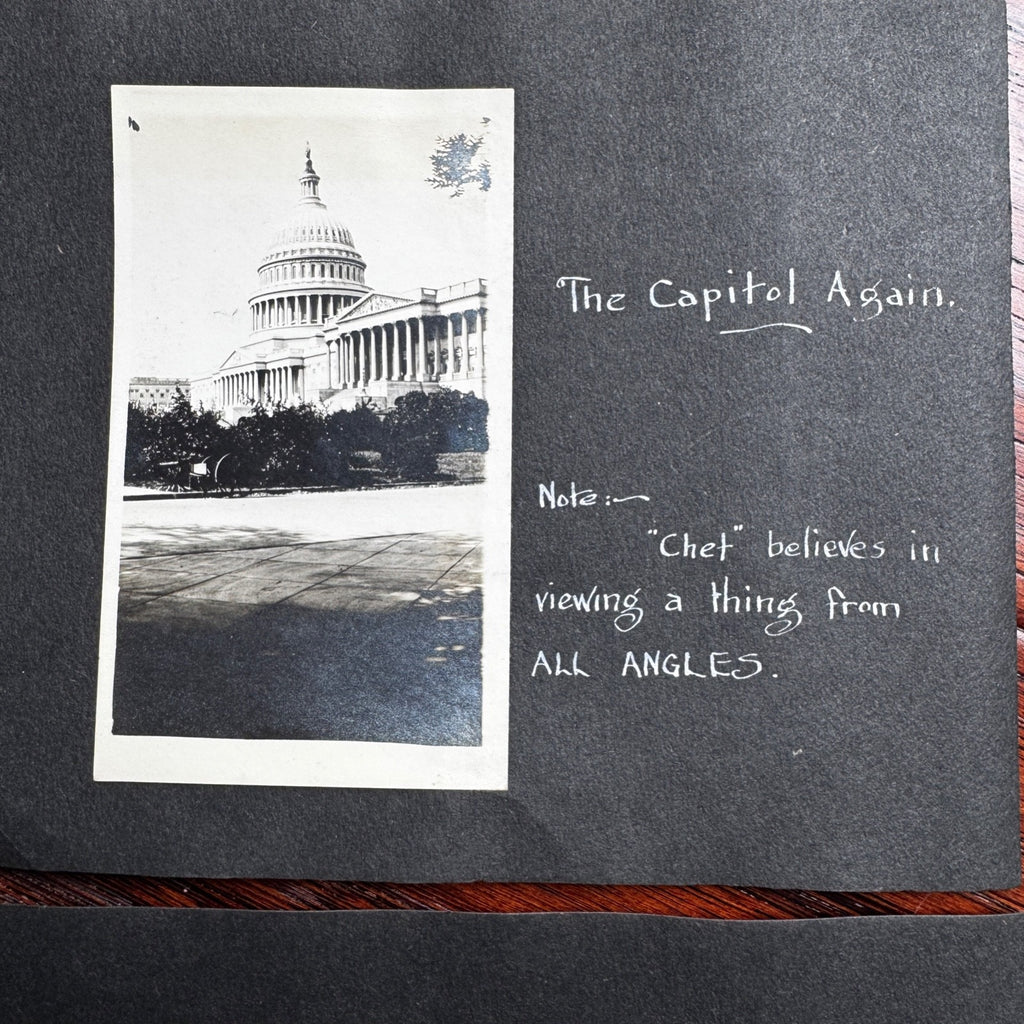 The Capitol Again.
Note:~
"Chet" believes in
viewing a thing from
ALL ANGLES.